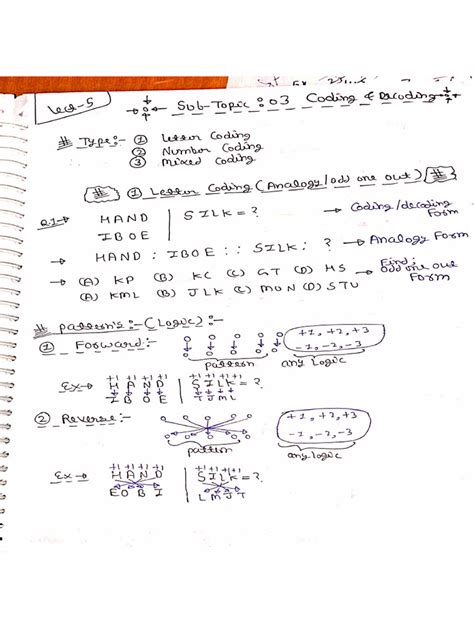 Lect-5
Sub-Topic : 03 Coding & Decoding
# Type:- ① Letter Coding
② Number Coding
③ Mixed Coding
# ① Letter Coding (Analogy/odd one out) #
Q.1→ HAND | SILK = ? → Coding/decoding
IBOE | Form
→ HAND : IBOE :: SILK : ? → Analogy Form
→ (A) KP (B) KC (C) GT (D) HS → Find:
(A) KML (B) JLK (C) MON (D) STU odd one out
Form
# Pattern's :- (Logic) :-
① Forward:- +1, +2, +3
-1, -2, -3
pattern any logic
+1 +1 +1 +1 +1 +1 +1 +1
Ex→ HAND | SILK = ?
IBOE | TJML
② Reverse:- +1, +2, +3
-1, -2, -3
pattern any logic
+1 +1 +1 +1 +1 +1 +1 +1
Ex→ HAND | SILK = ?
EOBI | LMJT